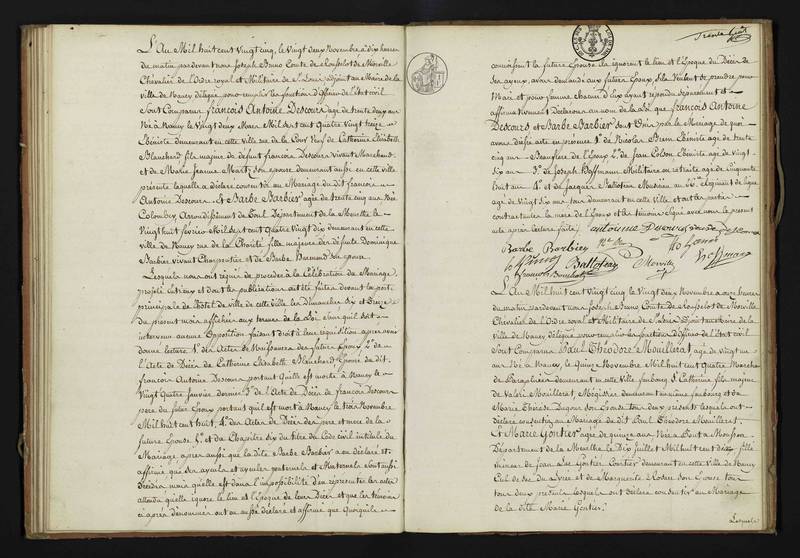 L'An Mil huit cent vingt cinq, le Vingt deux Novembre à dix heures
du matin pardevant nous Joseph Bruno Comte de Morville
Chevalier de l'Ordre royal et Militaire de St Louis adjoint au Maire de la
ville de Nancy délégué pour remplir les fonctions d'Officier de l'état civil
Sont Comparus françois Antoine Descours agé de trente deux ans
Né à Nancy le Vingt deux Mars Mil sept cent Quatre Vingt treize
Ebéniste demeurant en cette ville rue de la Cour Neuf de Catherine Elisabeth
Blanchard fils majeur de défunt francois Descours vivant Marchand
et de Marie Jeanne son epouse demeurant aussi en cette ville
présente laquelle a déclaré consentir au Mariage du dit françois
Antoine Descours et Barbe Barbier agée de trente cinq ans Née
Colombey, Arrondissement de Toul Departement de la Meurthe le
Vingt huit février Mil sept cent Quatre Vingt dix demeurant en cette
ville de Nancy rue de la Charité fille majeure des défunts Dominique
Barbier vivant Charpentier et de Barbe son epouse
Lesquels nous ont requis de procéder à la Célébration du Mariage
projeté entr'eux et dont les publications ont été faites devant la porte
principale de l'hôtel de ville de cette ville les Dimanches Six et treize
du présent mois affichées aux termes de la Loi sans qu'il soit
intervenu aucune Opposition faisant droit à leur requisition après avoir
donné lecture 1° des Actes de Naissances des futurs Epoux 2° de
l'Acte de Décès de Catherine Elisabeth Blanchard Epouse du dit
françois Antoine Descours portant quelle est morte à Nancy le
Vingt Quatre janvier dernier 3° de l'Acte de Décès de francois Descours
pere du futur Epoux portant qu'il est mort à Nancy le trois Novembre
Mil huit cent huit, 4° des Actes de Décès des pere et mere de la
future Epouse 5° et du Chapitre six du titre du Code civil intitulé du
Mariage, après aussi que la dite Barbe Barbier a eu déclaré et
affirmé que ses ayeuls et ayeules paternels et Maternels sont aussi
Décédés mais quelle est dans l'impossibilité d'en représenter les actes
attendu quelle ignore le lieu et l'époque de leur Décès et que les témoins
ci après dénommés ont eu aussi déclaré et affirmé que quoiqu'ils
Trente huit
connaissent la future Epouse ils ignorent le lieu et l'Epoque du Décès de
ses ayeux, avons demandé aux futurs Epoux, s'ils veulent se prendre pour
Mari et pour femme chacun d'Eux ayant répondu séparement et
affirmativement Déclarons au nom de la Loi que françois Antoine
Descours et Barbe Barbier sont Unis par le Mariage de quoi
avons dressé acte en présence 1° de Nicolas Ebéniste agé de trente
cinq ans Beaufrere de l'Epoux 2° de Jean Colson Ebéniste agé de vingt
six ans 3° de Joseph Hoffmann Militaire en retraite agé de Cinquante
huit ans 4° et de Jacques Musicien au Régiment de ligne
agé de Vingt six ans tous demeurant en cette Ville et ont les parties
contractantes la mere de l'Epoux et les témoins Signé avec nous le présent
acte après lecture faite
antoinne Descours
Barbe Barbier
Hoffman
Morville
L'An Mil huit cent vingt cinq, le Vingt deux Novembre à onze heures
du matin pardevant nous Joseph Bruno Comte de Morville
Chevalier de l'Ordre royal et Militaire de Saint Louis adjoint au Maire de la
Ville de Nancy délégué pour remplir les fonctions d'Officier de l'Etat civil
Sont Comparus Paul Théodore Mouillerat agé de vingt un
ans Né à Nancy, le Quinze Novembre Mil huit cent Quatre Marchand
de Parapluies demeurant en cette Ville faubourg St Catherine fils majeur
de Valeri Mouillerat, Mégissier demeurant même faubourg et de
Marie Thérèse son Epouse tous deux présents lesquels ont
déclaré consentir au Mariage du dit Paul Théodore Mouillerat
Et Marie Gontier agée de quinze ans Née à Pont à Mousson
Département de la Meurthe le Dix juillet Mil huit cent dix fille
mineure de Jean Gontier demeurant en cette Ville de Nancy
Cul de Sac et de Marguerite son Epouse tous
tous deux présents lesquels ont déclaré consentir au Mariage
de la dite Marie Gontier.
Lesquels